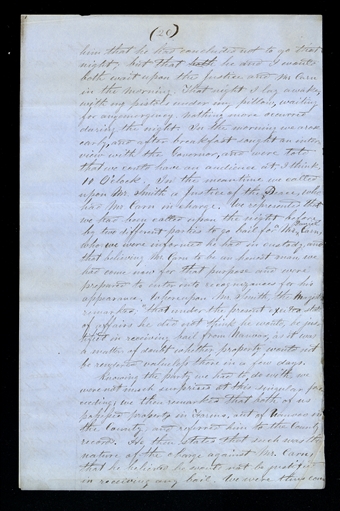 (20)
him that he had concluded not to go that
night, but that both he and I would
both wait upon the Justice and Mr Carn
in the morning. That night I lay awake
with my pistols under my pillow, waiting
for any emergency. Nothing more occurred
during the night. In the morning we arose
early, and after breakfast sought an inter
view with the Governor, and were told
that we could have an audience at, I think
10 O'clock. In the meantime we called
upon Mr. Smith a Justice of the Peace, who
had Mr Carn in charge. We represented that
we had been called upon the night before
by two different parties to go bail for Mr. Carn,
who we were informed he had in custody, and
that believing Mr Carn to be an honest man we
had come now for that purpose and were
prepared to enter into recognizances for his
appearance. Whereupon Mr Smith, the
remarked "that under the present state
of affairs he did not think he would be jus
tified in receiving bail from Kansas, as it was
a matter of doubt whether property would not
be rendered valueless there in a few days.
Knowing the party we had to do with we
were not much surprised at this singular pro
ceeding, we then remarked that both of us
possessed property in Farms, out of Kansas in
the County and referred him to the County
record. He then stated that such was the
nature of the charge against Mr. Carn
that he believed he would not be justified
in receiving any bail. We were then con